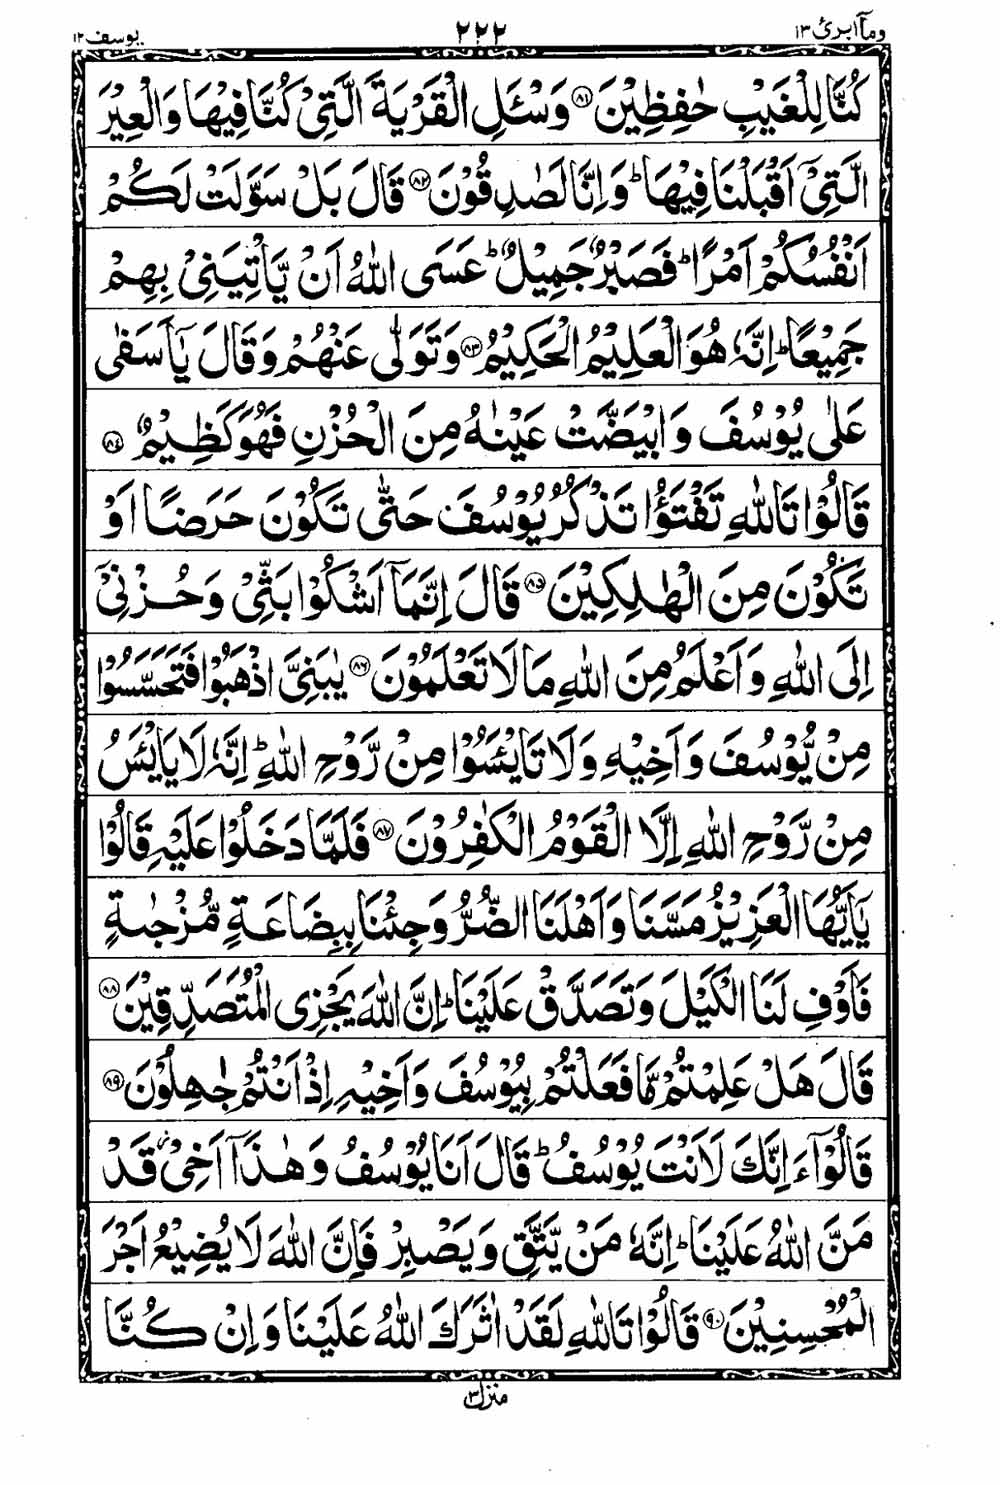 وما ابرئ ١٣
٢٢٢
يوسف ١٢
كُنَّا لِلْغَيْبِ حٰفِظِيْنَ ﴿٨١﴾ وَسْـَٔلِ الْقَرْيَةَ الَّتِيْ كُنَّا فِيْهَا وَالْعِيْرَ
الَّتِيْۤ اَقْبَلْنَا فِيْهَا ؕ وَاِنَّا لَصٰدِقُوْنَ ﴿٨٢﴾ قَالَ بَلْ سَوَّلَتْ لَكُمْ
اَنْفُسُكُمْ اَمْرًا ؕ فَصَبْرٌ جَمِيْلٌ ؕ عَسَى اللّٰهُ اَنْ يَّاْتِيَنِيْ بِهِمْ
جَمِيْعًا ؕ اِنَّهٗ هُوَ الْعَلِيْمُ الْحَكِيْمُ ﴿٨٣﴾ وَتَوَلّٰى عَنْهُمْ وَقَالَ يٰۤاَسَفٰى
عَلٰى يُوْسُفَ وَابْيَضَّتْ عَيْنٰهُ مِنَ الْحُزْنِ فَهُوَ كَظِيْمٌ ﴿٨٤﴾
قَالُوْا تَاللّٰهِ تَفْتَؤُا تَذْكُرُ يُوْسُفَ حَتّٰى تَكُوْنَ حَرَضًا اَوْ
تَكُوْنَ مِنَ الْهٰلِكِيْنَ ﴿٨٥﴾ قَالَ اِنَّمَاۤ اَشْكُوْا بَثِّيْ وَحُزْنِيْۤ
اِلَى اللّٰهِ وَاَعْلَمُ مِنَ اللّٰهِ مَا لَا تَعْلَمُوْنَ ﴿٨٦﴾ يٰبَنِيَّ اذْهَبُوْا فَتَحَسَّسُوْا
مِنْ يُّوْسُفَ وَاَخِيْهِ وَلَا تَايْـَٔسُوْا مِنْ رَّوْحِ اللّٰهِ ؕ اِنَّهٗ لَا يَايْـَٔسُ
مِنْ رَّوْحِ اللّٰهِ اِلَّا الْقَوْمُ الْكٰفِرُوْنَ ﴿٨٧﴾ فَلَمَّا دَخَلُوْا عَلَيْهِ قَالُوْا
يٰۤاَيُّهَا الْعَزِيْزُ مَسَّنَا وَاَهْلَنَا الضُّرُّ وَجِئْنَا بِبِضَاعَةٍ مُّزْجٰىةٍ
فَاَوْفِ لَنَا الْكَيْلَ وَتَصَدَّقْ عَلَيْنَا ؕ اِنَّ اللّٰهَ يَجْزِي الْمُتَصَدِّقِيْنَ ﴿٨٨﴾
قَالَ هَلْ عَلِمْتُمْ مَّا فَعَلْتُمْ بِيُوْسُفَ وَاَخِيْهِ اِذْ اَنْتُمْ جٰهِلُوْنَ ﴿٨٩﴾
قَالُوْۤا ءَاِنَّكَ لَاَنْتَ يُوْسُفُ ؕ قَالَ اَنَا يُوْسُفُ وَهٰذَاۤ اَخِيْ قَدْ
مَنَّ اللّٰهُ عَلَيْنَا ؕ اِنَّهٗ مَنْ يَّتَّقِ وَيَصْبِرْ فَاِنَّ اللّٰهَ لَا يُضِيْعُ اَجْرَ
الْمُحْسِنِيْنَ ﴿٩٠﴾ قَالُوْا تَاللّٰهِ لَقَدْ اٰثَرَكَ اللّٰهُ عَلَيْنَا وَاِنْ كُنَّا
منزل ٣